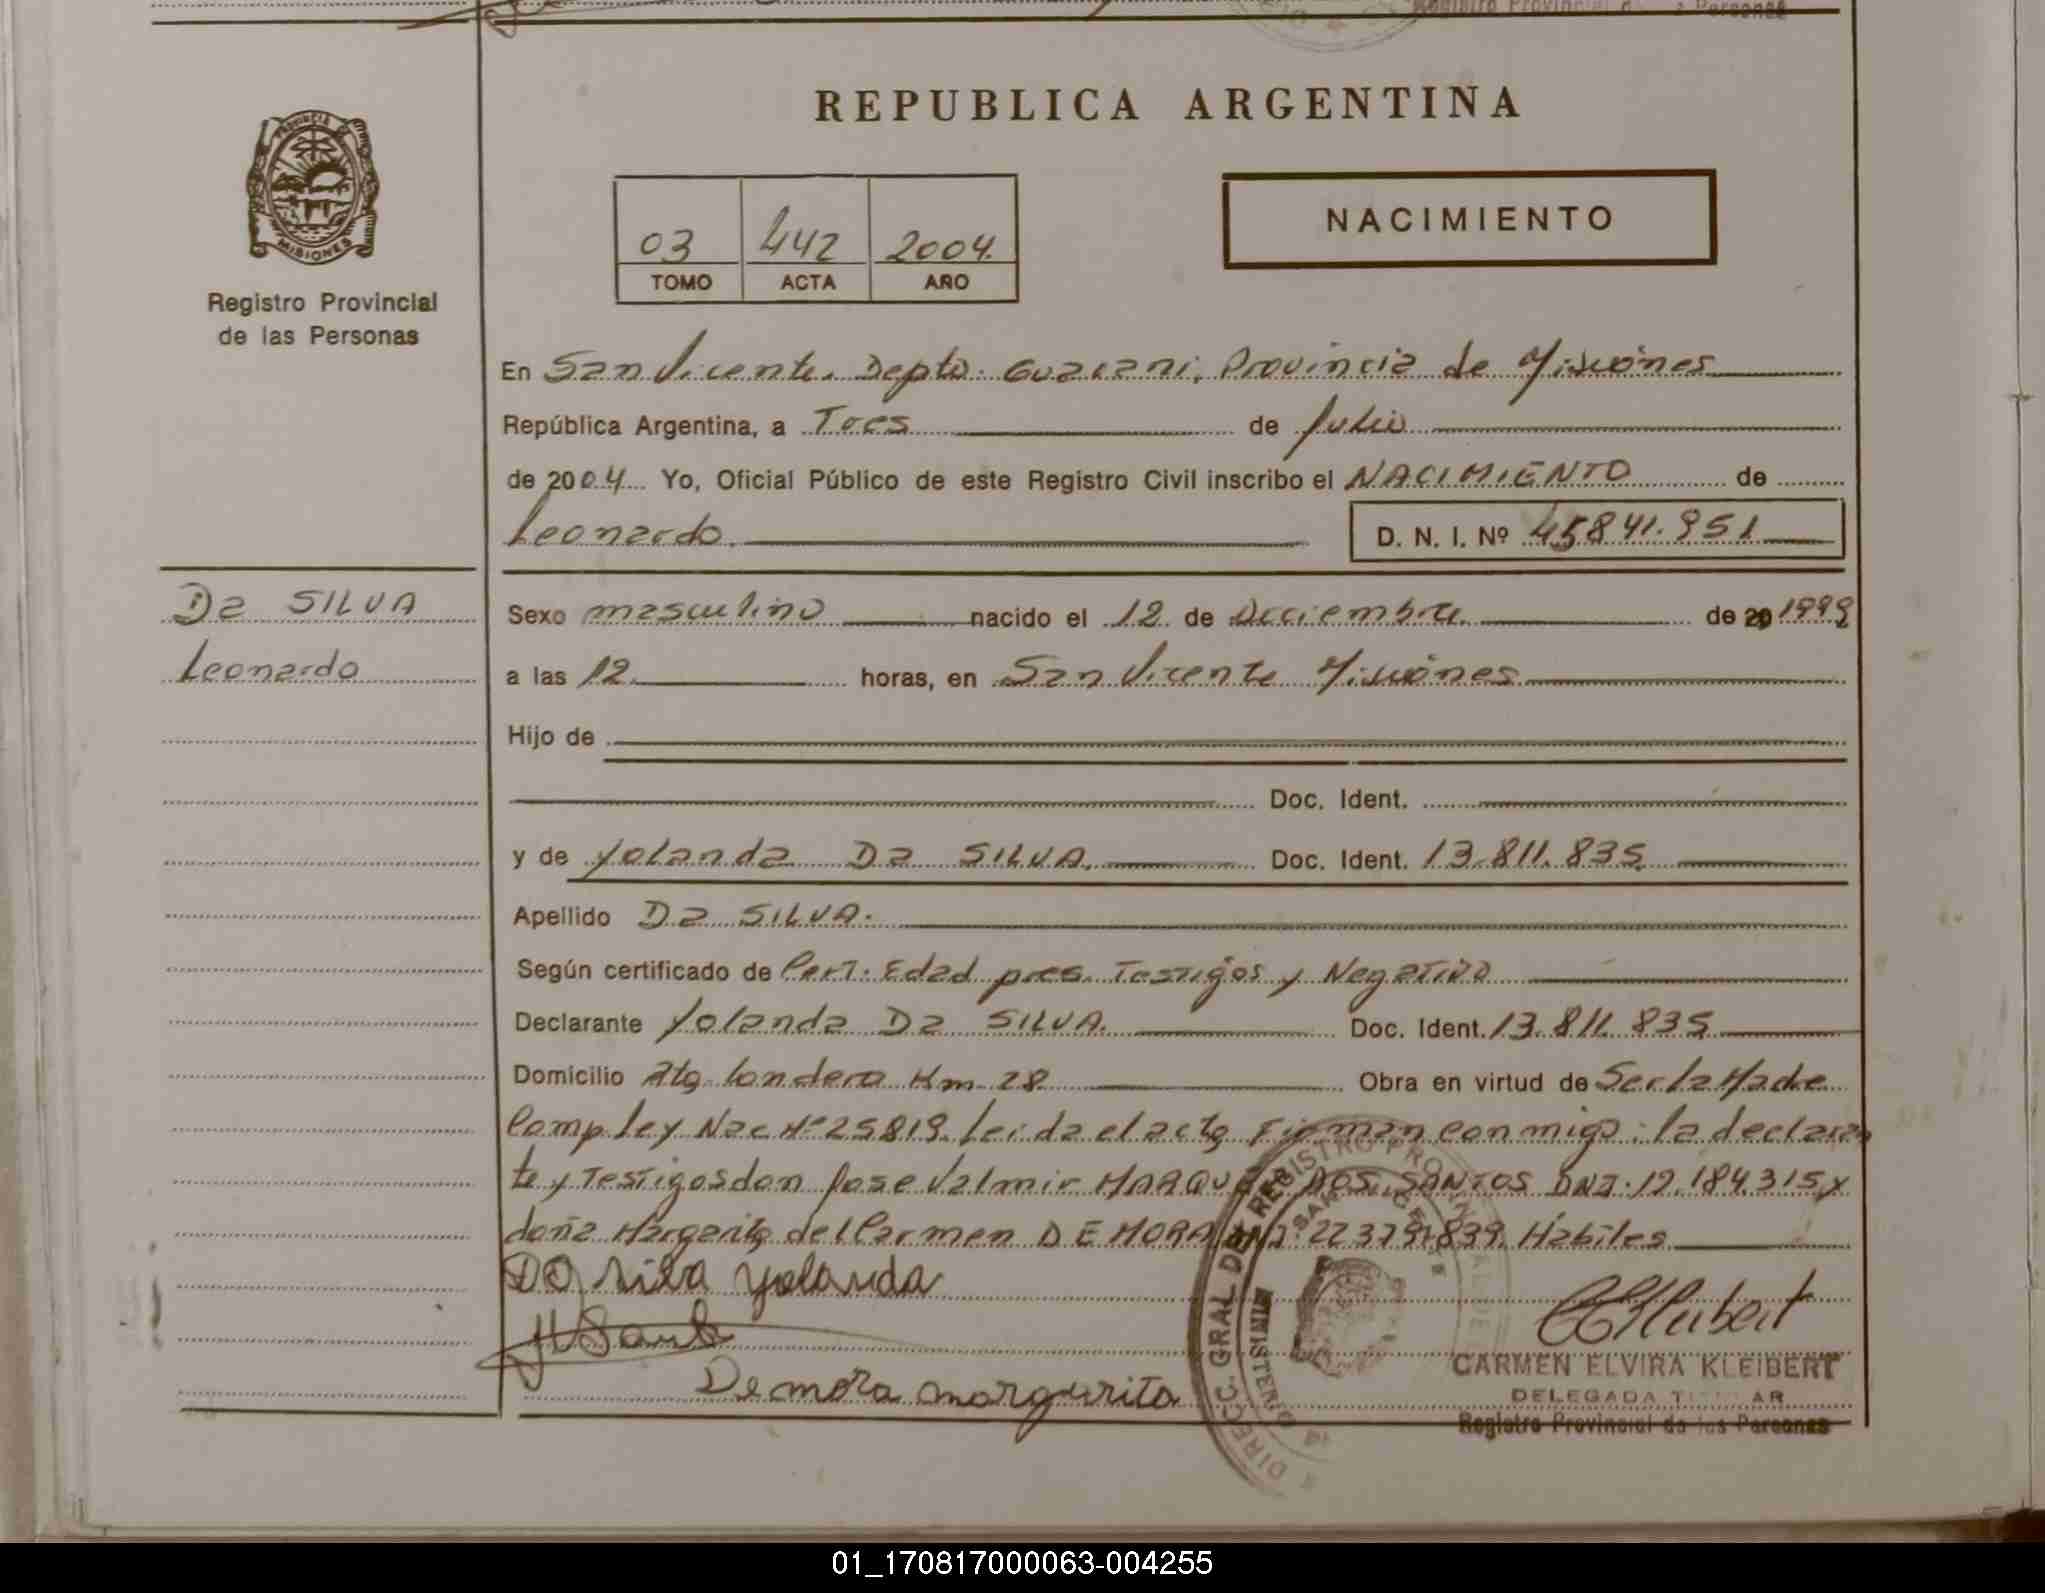 REPUBLICA ARGENTINA
PROVINCIA DE MISIONES
Registro Provincial
de las Personas
03 442 2004
TOMO ACTA AÑO
NACIMIENTO
En San Vicente. Depto. Guarani, Provincia de Misiones
República Argentina, a Tres de Julio
de 2004 Yo, Oficial Público de este Registro Civil inscribo el NACIMIENTO de
Leonardo. D. N. I. Nº 45841.951
Da SILVA
Leonardo
Sexo masculino nacido el 12 de Diciembre de 20 1999
a las 12 horas, en San Vicente Misiones
Hijo de
Doc. Ident.
y de Yolanda Da SILVA. Doc. Ident. 13.811.835
Apellido Da SILVA.
Según certificado de Cert. Edad pres. Testigos y Negativo
Declarante Yolanda Da SILVA. Doc. Ident. 13.811.835
Domicilio Km 28 Obra en virtud de Ser la Madre
Comp. ley Nac Nº 25819. Leida el acta Firman conmigo: la declaran
te y Testigos don Jose Valmir MARQUES DOS SANTOS DNI. 12.184.315 y
doña Margarita del Carmen DE MORA Hábiles
Da Silva Yolanda
De mora margarita
CARMEN ELVIRA KLEIBERT
DELEGADA TITULAR
Registro Provincial de las Personas
01_170817000063-004255